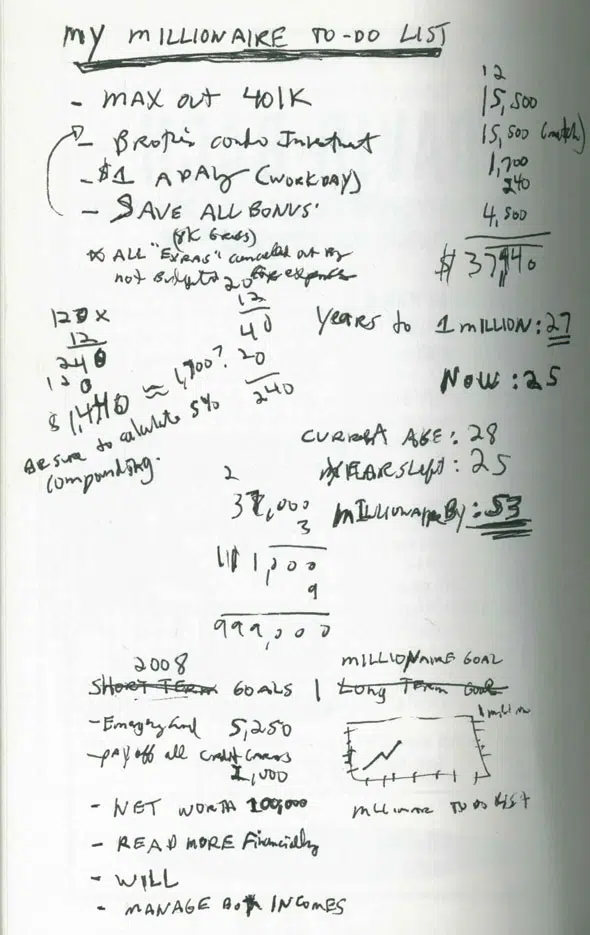 MY MILLIONAIRE TO-DO LIST
- MAX OUT 401K
- condo
- $1 A DAY (WORKDAY)
- SAVE ALL BONUS'
(8K GROSS)
ALL "EXTRAS" canceled out by
not
12
15,500
15,500 (match)
1,700
240
4,500
$37,940
120 x
12
240
120
$1,440 ≈ 1,700?
Be sure to calculate 5%
compounding.
20
12
40
20
240
Years to 1 million: 27
Now: 25
CURRENT AGE: 28
YEARS Left: 25
MILLIONAIRE By: 53
2
37,000
3
111,000
9
999,000
2008
SHORT TERM GOALS
- Emergency fund 5,250
- pay off all credit cards
1,000
- NET WORTH 100,000
- READ MORE Financially
- WILL
- MANAGE BOTH INCOMES
MILLIONAIRE GOAL
Long Term Goal
1 million
MILLIONAIRE TO DO LIST